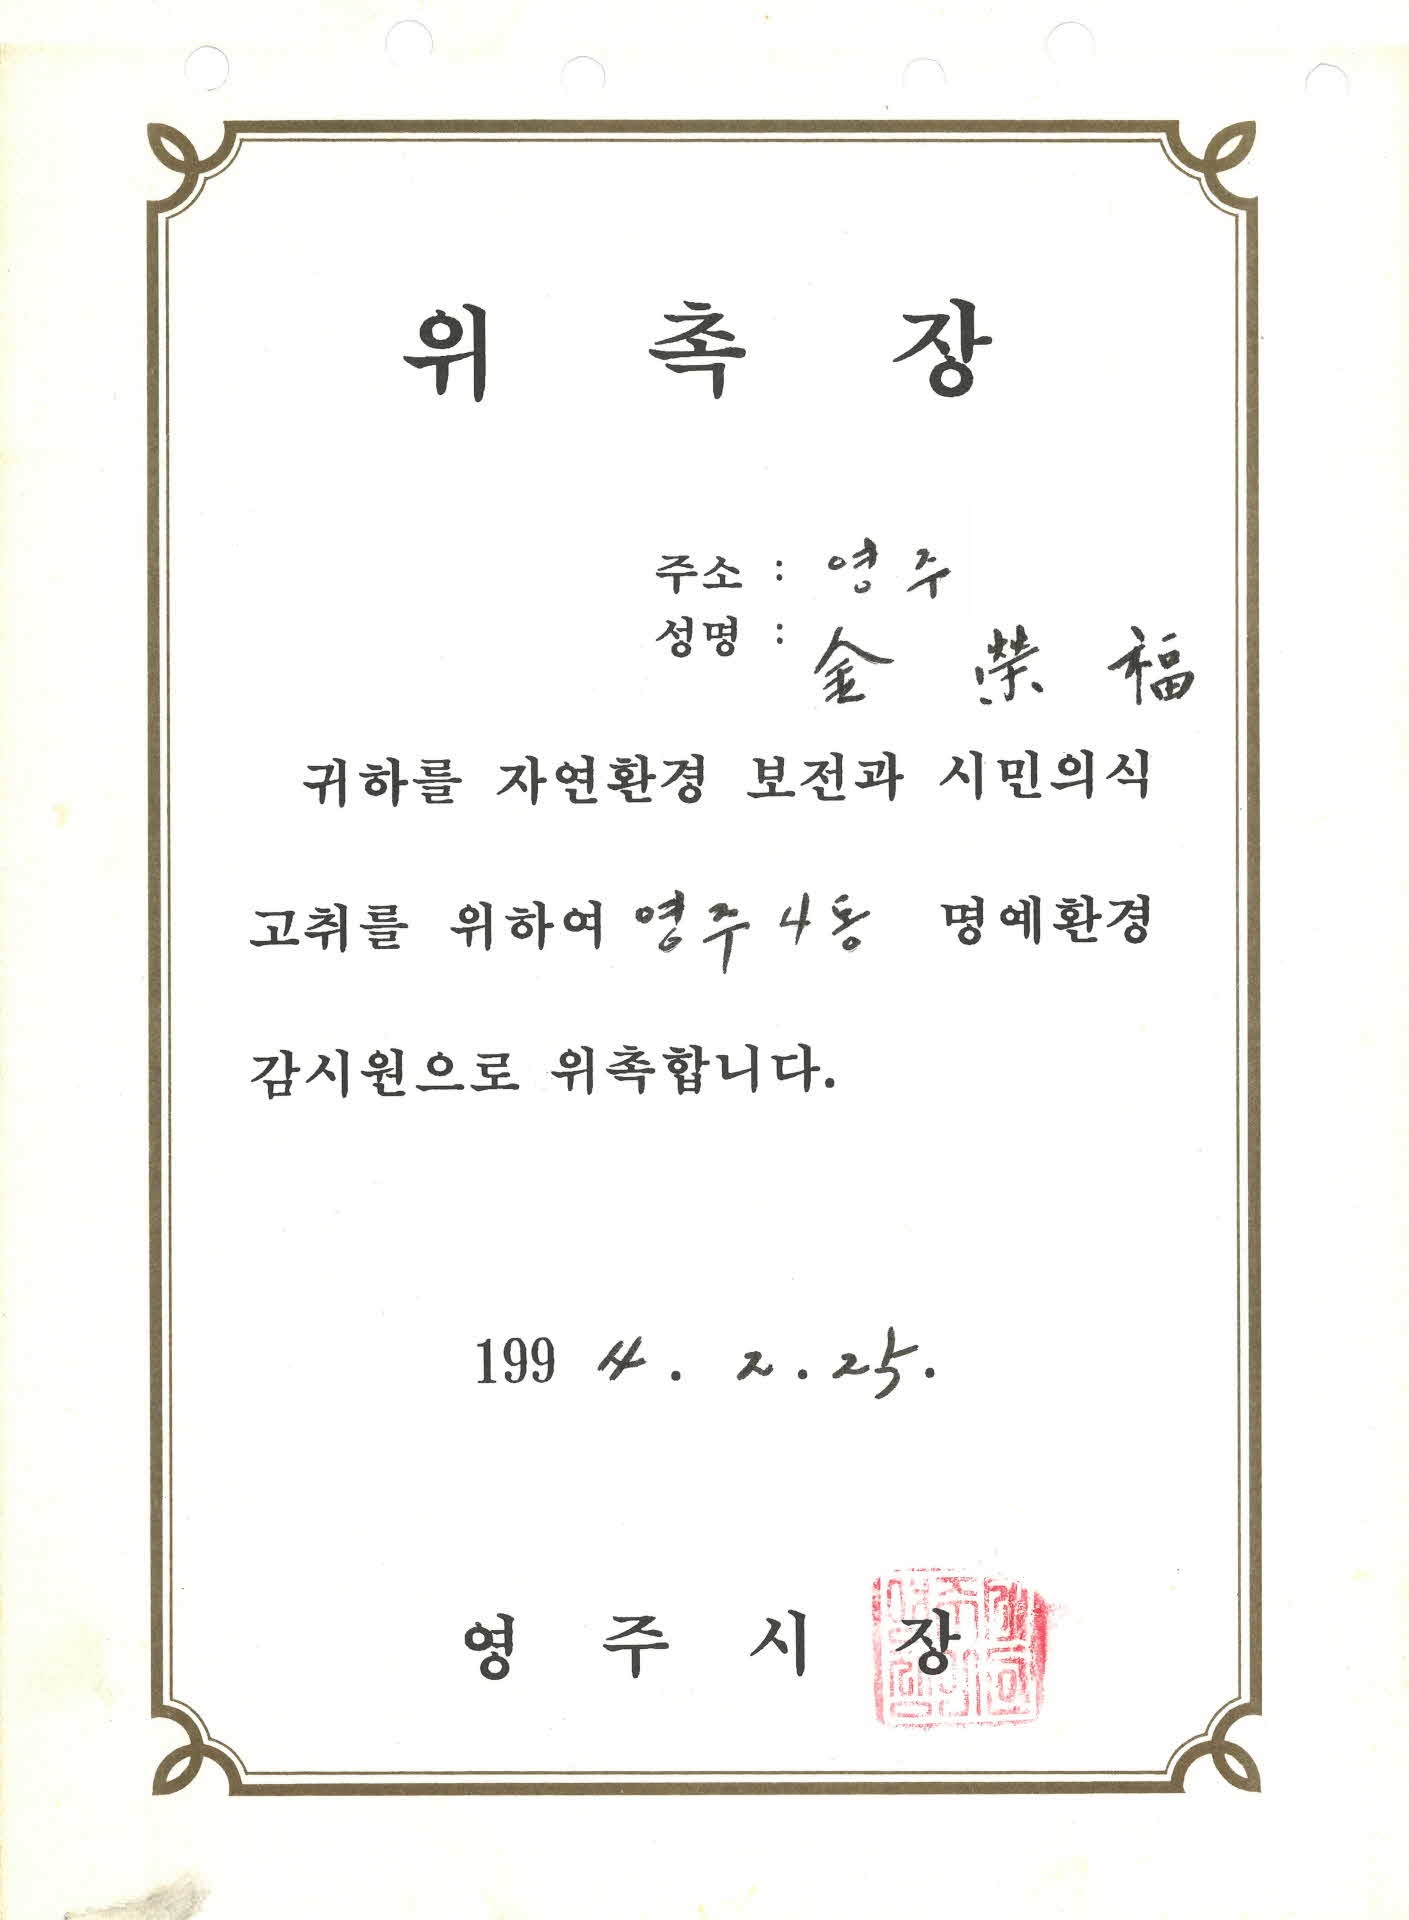 위 촉 장
주소 : 영주
성명 : 金 榮 福
귀하를 자연환경 보전과 시민의식
고취를 위하여 영주4동 명예환경
감시원으로 위촉합니다.
1994. 2. 25.
영 주 시 장